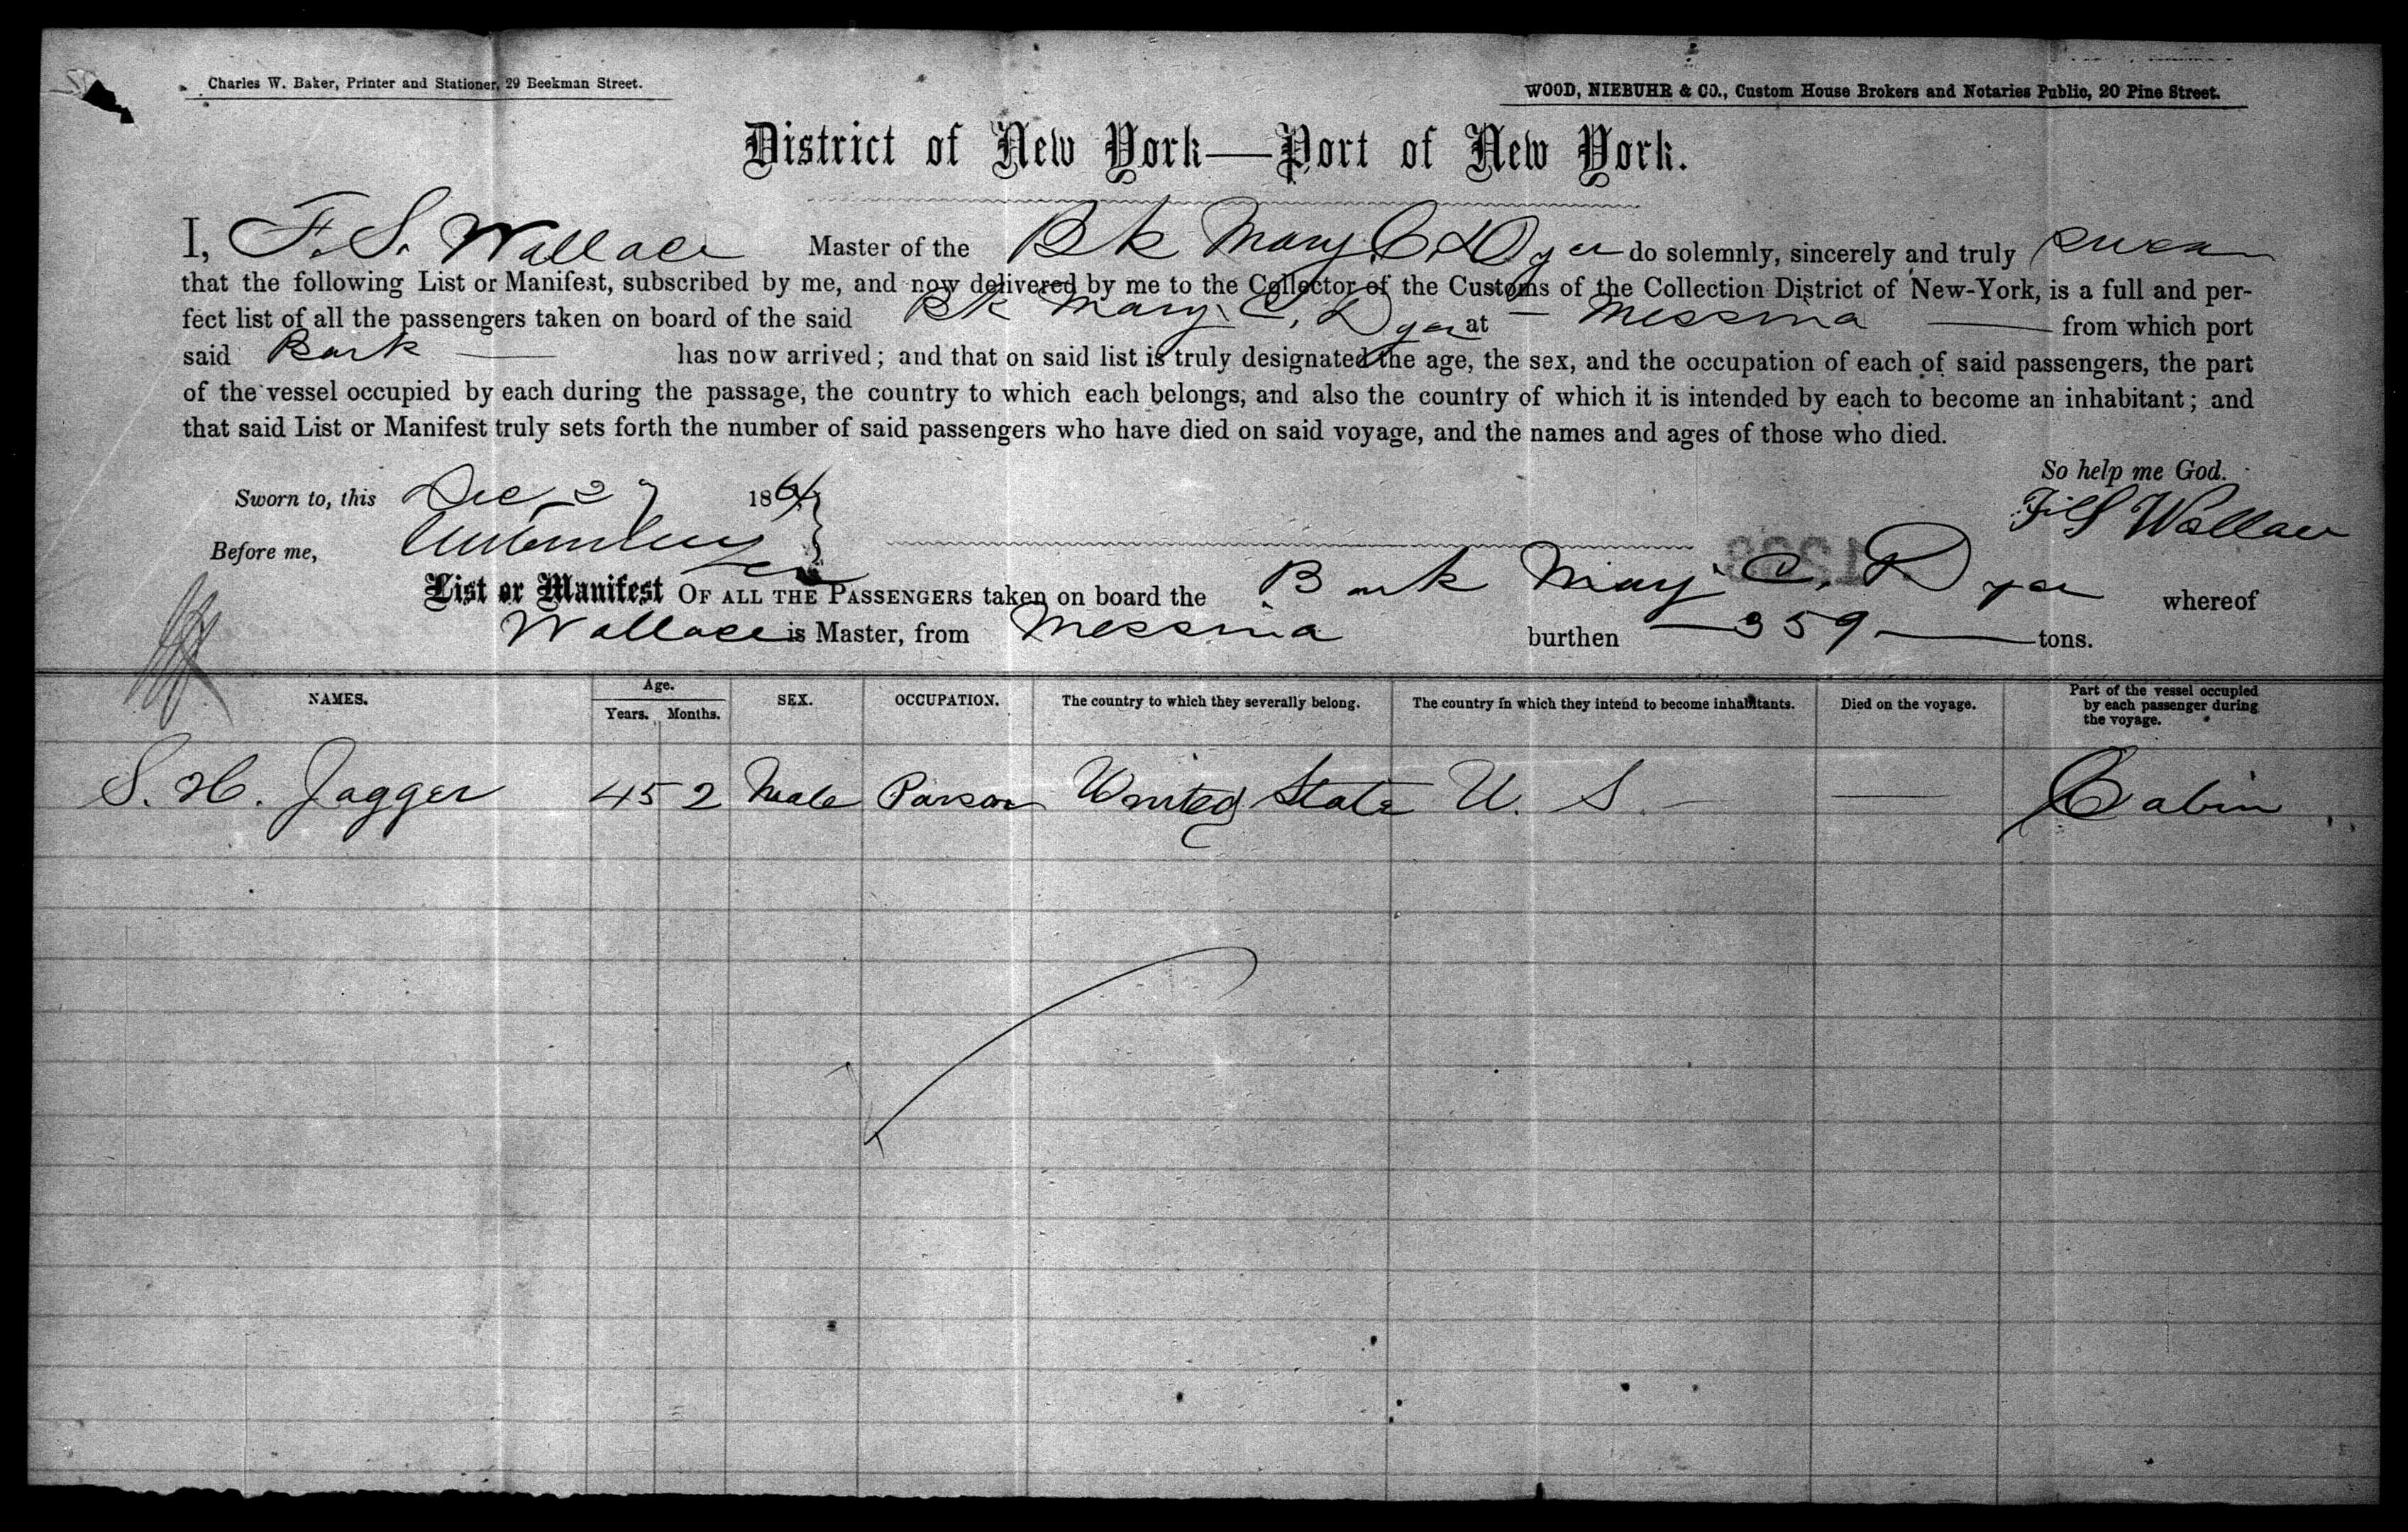 Charles W. Baker, Printer and Stationer, 29 Beekman Street.
WOOD, NIEBUHR & CO., Custom House Brokers and Notaries Public, 20 Pine Street.
District of New York—Port of New York.
I, F. S. Wallace Master of the Bk Mary C. Dyer do solemnly, sincerely and truly swear
that the following List or Manifest, subscribed by me, and now delivered by me to the Collector of the Customs of the Collection District of New-York, is a full and per-
fect list of all the passengers taken on board of the said Bk Mary C. Dyer at — Messina — from which port
said Bark — has now arrived; and that on said list is truly designated the age, the sex, and the occupation of each of said passengers, the part
of the vessel occupied by each during the passage, the country to which each belongs, and also the country of which it is intended by each to become an inhabitant; and
that said List or Manifest truly sets forth the number of said passengers who have died on said voyage, and the names and ages of those who died.
So help me God.
Sworn to, this Dec 27 186
S Wallace
Before me,
List or Manifest OF ALL THE PASSENGERS taken on board the Bark Mary C. Dyer whereof
Wallace is Master, from Messina burthen — 359 — tons.
NAMES. Age. Years. Months. SEX. OCCUPATION. The country to which they severally belong. The country in which they intend to become inhabitants. Died on the voyage. Part of the vessel occupied by each passenger during the voyage.
S. H. Jagger 45 2 Male Parson United State U. S. — — Cabin